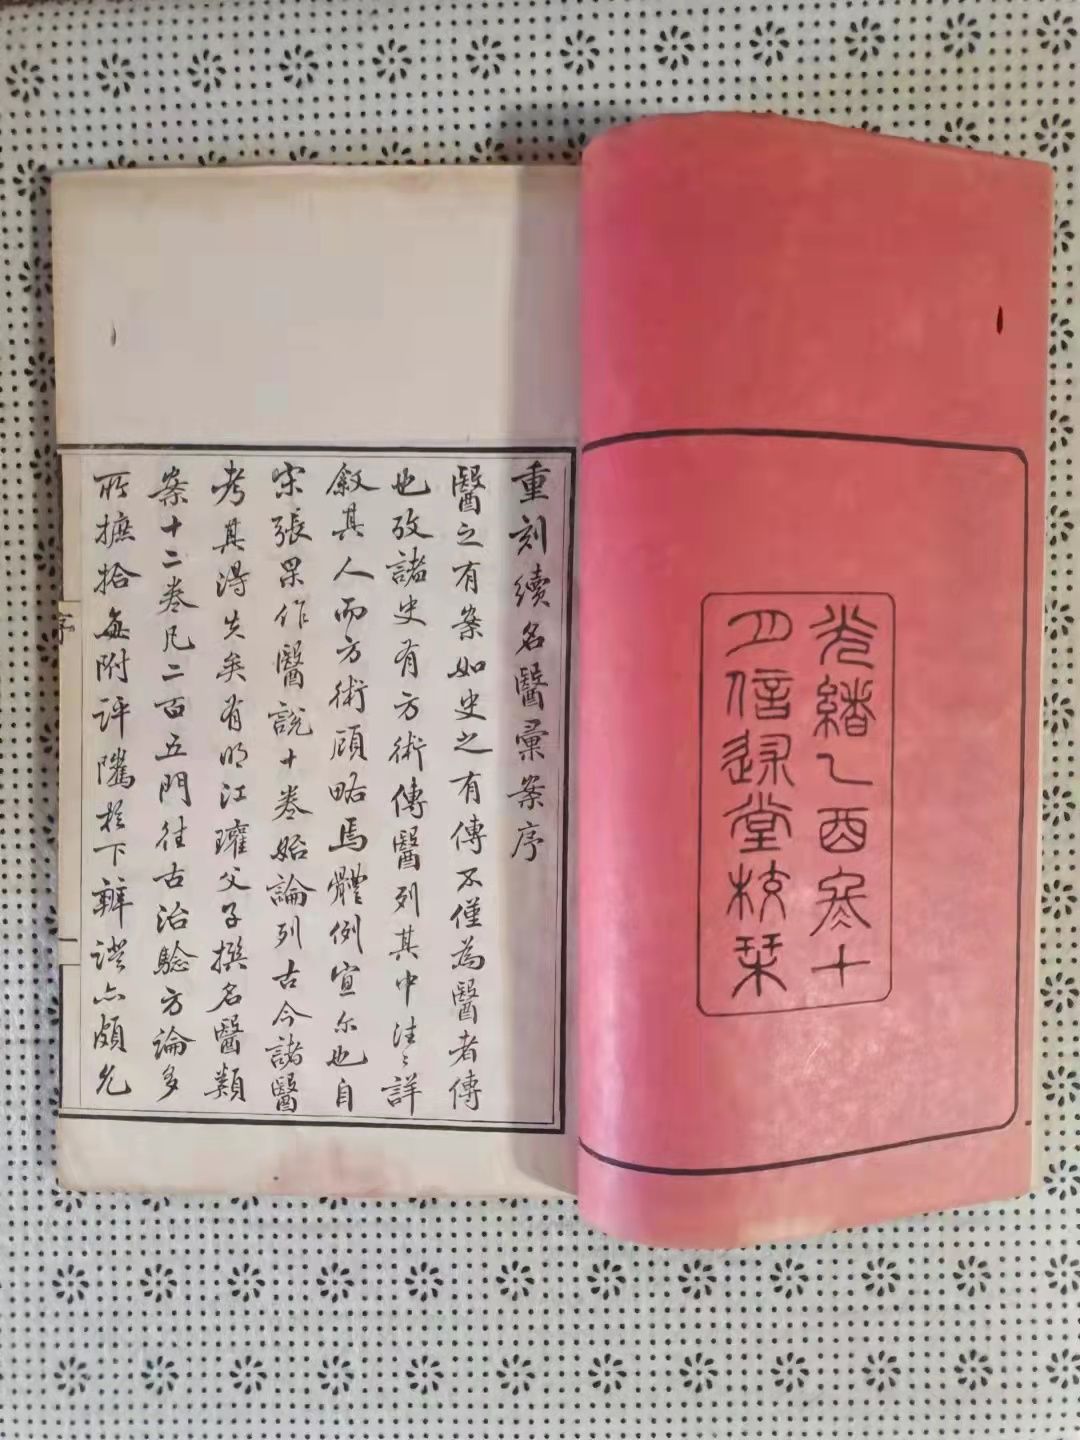 光緒乙酉冬十
月信述堂校栞
重刻續名醫彙案序
醫之有案如史之有傳不僅為醫者傳
也攷諸史有方術傳醫列其中往〻詳
敘其人而方術顧略焉體例宜尔也自
宋張杲作醫說十卷始論列古今諸醫
考其得失矣有明江瓘父子撰名醫類
案十二卷凡二百五門往古治騐方論多
所摭拾每附評隲於下辨證亦頗允
序